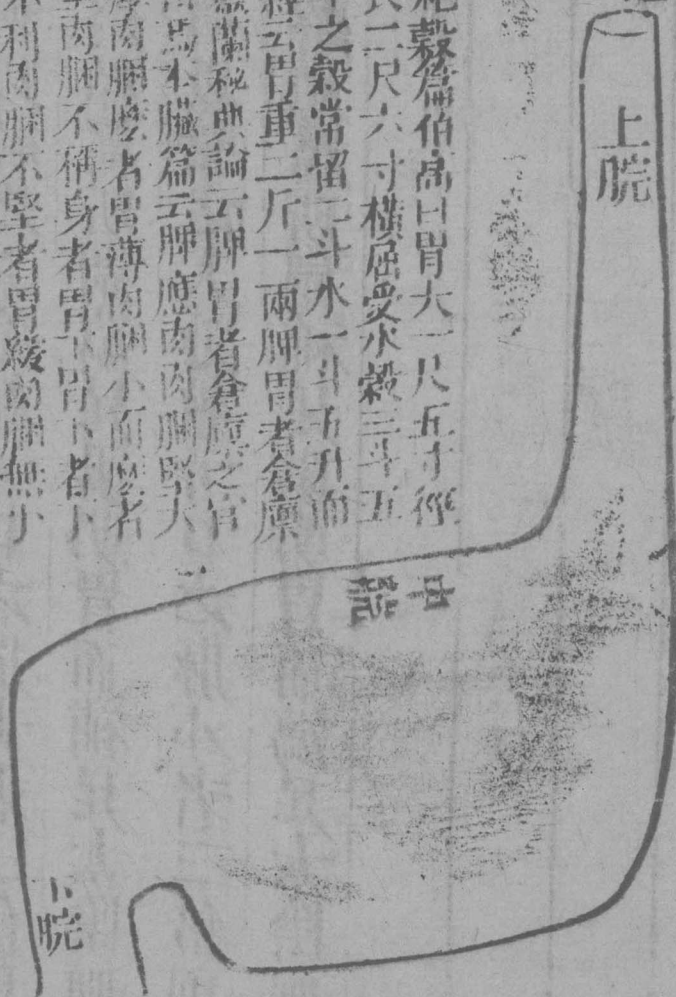 上脘
中脘
下脘
穀篇伯高曰胃大一尺五寸徑
二尺六寸橫屈受水穀三斗五
之穀常留二斗水一斗五升而
云胃重二斤一兩脾胃者倉廩
蘭秘典論云脾胃者倉廩之官
為本臟篇云脾應肉肉䐃堅大
肉䐃麼者胃薄肉䐃小而麼者
肉䐃不稱身者胃下胃下者下
不利肉䐃不堅者胃緩肉䐃無小